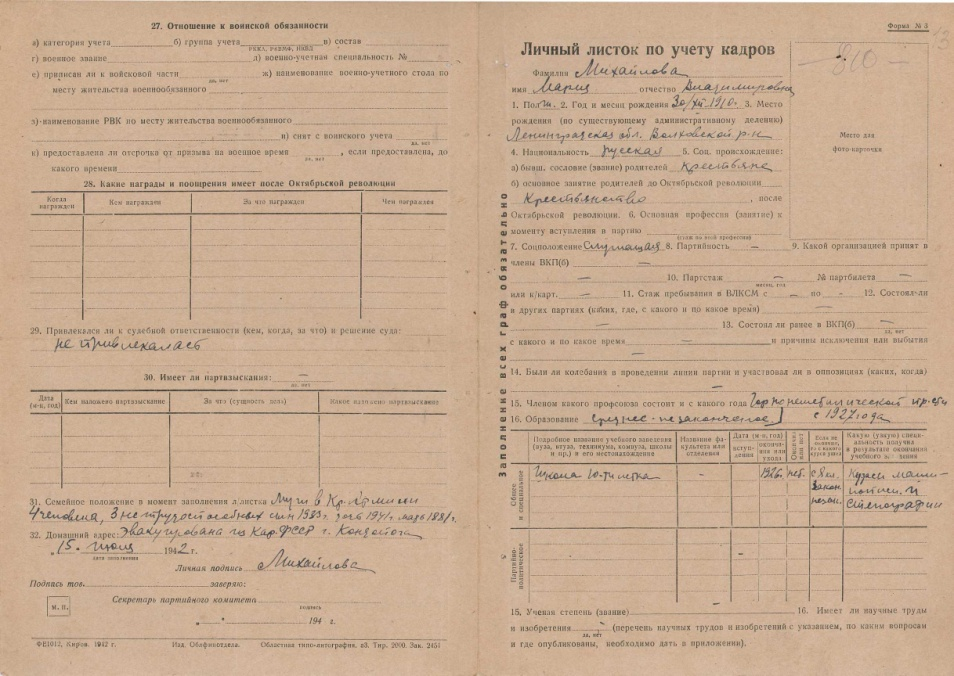 27. Отношение к воинской обязанности
а) категория учета б) группа учета в) состав
г) военное звание д) военно-учетная специальность №
е) приписан ли к войсковой части ж) наименование военно-учетного стола по
да, нет
месту жительства военнообязанного
з)-наименование РВК по месту жительства военнообязанного
и) снят с воинского учета
да, нет
к) предоставлена ли отсрочка от призыва на военное время , если предоставлена, до
да, нет
какого времени
28. Какие награды и поощрения имеет после Октябрьской революции
Когда награжден Кем награжден За что награжден Чем награжден
29. Привлекался ли к судебной ответственности (кем, когда, за что) и решение суда:
не привлекалась
30. Имеет ли партвзыскания: —
да, нет
Дата (м-ц, год) Кем наложено партвзыскание За что (сущность дела) Какое назначено партвзыскание
31. Семейное положение в момент заполнения листка Муж в Кр. Армии
4 человека, 3 нетрудоспособных сын
32. Домашний адрес: Эвакуирована из Кар.ФССР г. Кондопога
„15. июля 1942 г.
дата заполнения
Личная подпись Михайлова
Подпись тов. заверяю:
Секретарь партийного комитета
подпись
М. П.
„ “ 194 г.
ФЕ1012, Киров. 1942 г. Изд. Облфинотдела. Областная типо-литография. Тир. 2000. Зак. 2451
Форма № 3
13
810
Личный листок по учету кадров
Фамилия Михайлова
имя Мария отчество Владимировна
1. Пол ж. 2. Год и месяц рождения 30/XII.1910г. 3. Место
рождения (по существующему административному делению)
Ленинградская обл. Волховской р-н
4. Национальность русская 5. Соц. происхождение:
а) бывш. сословие (звание) родителей крестьяне
б) основное занятие родителей до Октябрьской революции
Крестьянство , после
Октябрьской революции. 6. Основная профессия (занятие) к
моменту вступления в партию
(стаж по этой профессии)
Место для
фото-карточки
7. Соцположение Служащая 8. Партийность — 9. Какой организацией принят в
члены ВКП(б) —
— 10. Партстаж — № партбилета —
месяц, год
или к/карт. — 11. Стаж пребывания в ВЛКСМ с — по - 12. Состоял-ли
в других партиях (каких, где, с какого и по какое время)
— 13. Состоял ли ранее в ВКП(б) —
да, нет
с какого и по какое время — и причины исключения или выбытия
—
14. Были ли колебания в проведении линии партии и участвовал ли в оппозициях (каких, когда)
—
15. Членом какого профсоюза состоит и с какого года
16. Образование среднее-незаконченое с 1927 года
Заполнение всех граф обязательно
Подробное название учебного заведения (вуза, втуза, техникума, комвуза, школы и пр.) и его местонахождение Название факультета или отделения Дата (м-ц, год) вступления окончания или ухода Окончил или нет Если не окончил, то с какого курса ушел Какую (узкую) специальность получил в результате окончания учебного заведения
Общее и специальное
Школа 10-летка 1926 с 8 кл. Курсы машинописи и стенографии
Партийно-политическое
15. Ученая степень (звание) — 16. Имеет ли научные труды
и изобретения — (перечень научных трудов и изобретений с указанием, по каким вопросам
да, нет
и где опубликованы, необходимо дать в приложении).